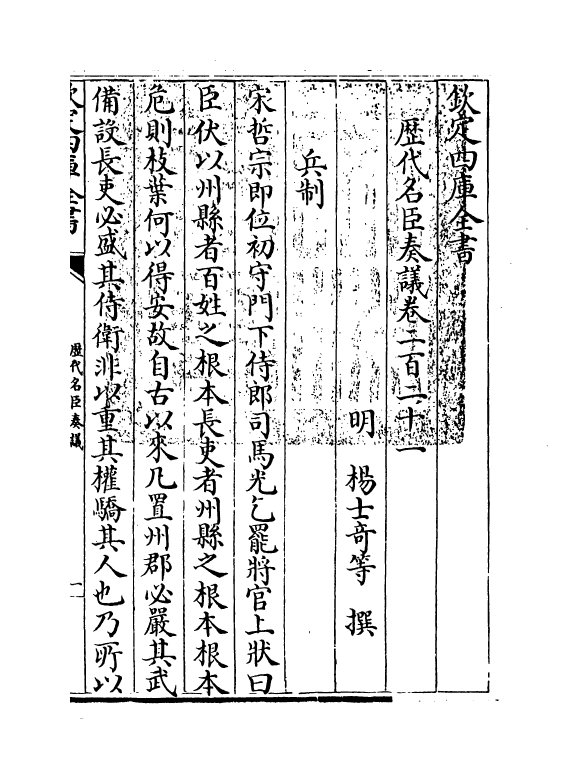 欽定四庫全書
歴代名臣奏議卷二百二十一
明 楊士奇等 撰
兵制
宋哲宗即位初守門下侍郎司馬光乞罷將官上狀曰
臣伏以州縣者百姓之根本長吏者州縣之根本根本
危則枝葉何以得安故自古以來凡置州郡必嚴其武
備設長吏必盛其侍衛非以重其權驕其人也乃所以
欽定四庫全書
歴代名臣奏議